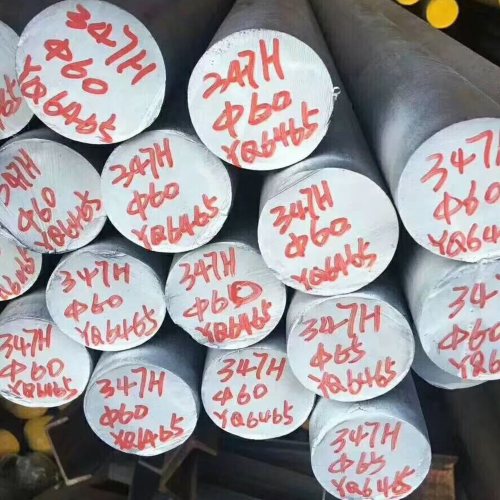 347H
Φ60
YQ6465
347H
Φ60
YQ6465
347H
Φ60
YQ646
65
347H
Φ60
YQ6465
347H
Φ60
YQ6465
347H
Φ60
YQ6465
347H
Φ60
YQ6465
347H
Φ60
YQ6465
347H
Φ65
YQ6465
34
Φ60
YQ64
347H
Φ60
YQ6465
347H
Φ60
YQ6465
347H
Φ60
YQ6465
347H
Φ65
YQ6465